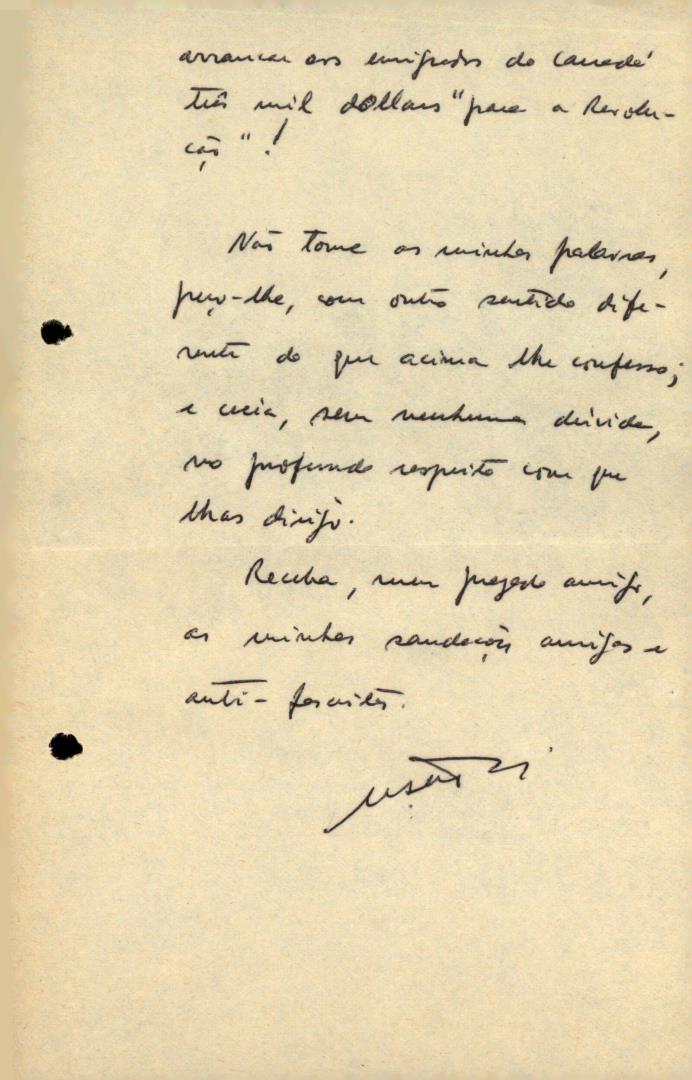 arrancar aos emigrados do Canadá
três mil dollars "para a Revolu-
ção"!
Não tome as minhas palavras,
peço-lhe, com outro sentido dife-
rente do que acima lhe confesso;
e creia, sem nenhuma dúvida,
no profundo respeito com que
lhas dirijo.
Receba, meu prezado amigo,
as minhas saudações amigas e
anti-fascistas.